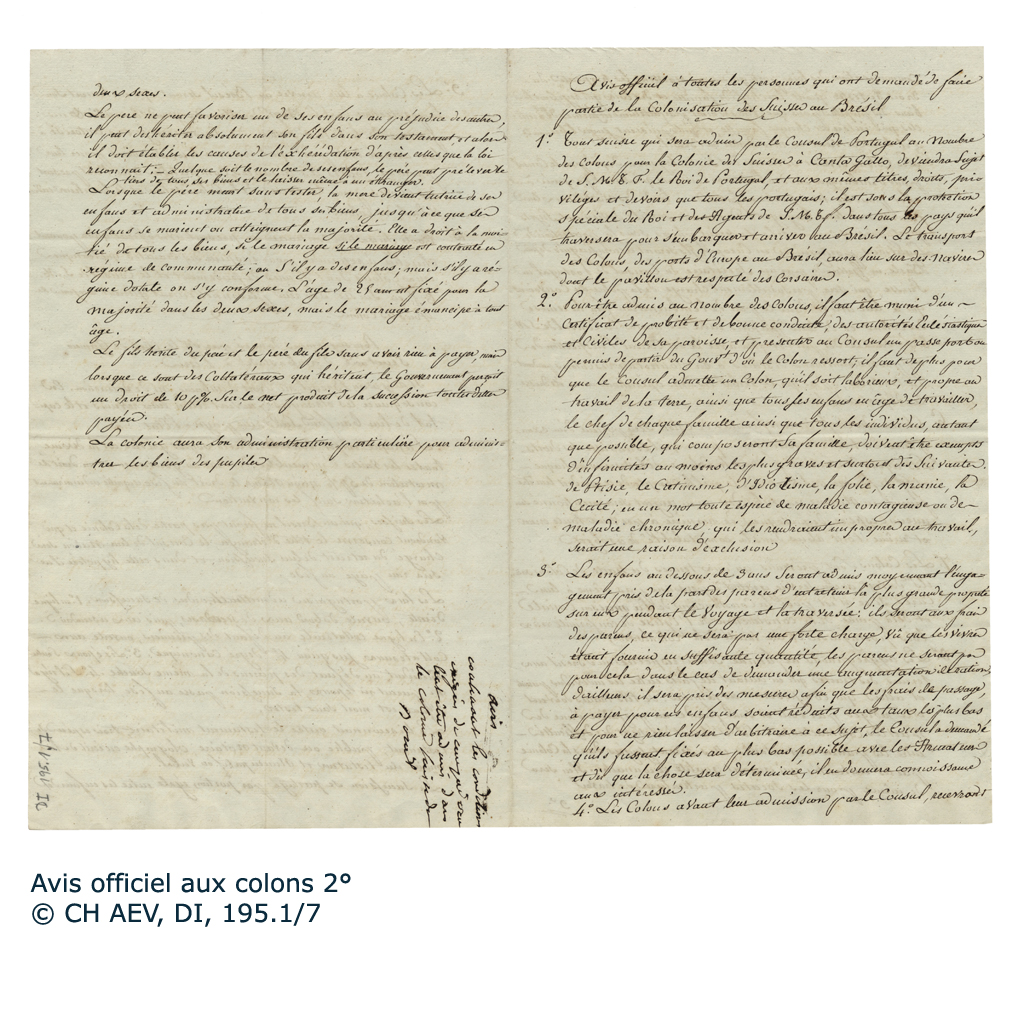 deux sexes.
Le pere ne peut favoriser un de ses enfans au préjudice des autres,
il peut desheriter absolument son fils dans son testament et alors
il doit établer les causes de l'exhérédation d'après celles que la loi
reconnait. — Quelque soit le nombre de ses enfans, le père peut prélever le
tiers de tous ses biens et le laisser même à un étranger.
Lorsque le père meurt sans tester, la mere devient tutrice de ses
enfans et administratrice de tous ses biens jusqu'à ce que ses
enfans se marient ou atteignent la majorité. Elle a droit à la moi-
tié de tous les biens, si le mariage si le mariage est contracté en
régime de communauté; ou s'il y a des enfans; mais s'il y a ré-
gime dotale on s'y conforme. L'âge de 25 ans est fixé pour la
majorité dans les deux sexes, mais le mariage émancipe à tout
âge.
Le fils hérite du père et le père du fils sans avoir rien à payer, mais
lorsque ce sont des Collatéraux qui héritent, le Gouvernement perçoit
un droit de 10 p%. sur le net produit de la sucession toutes dettes
payées.
La colonie aura son administration particulière pour adminis-
trer les biens des pupiles
avis
contenant les conditions
pour être admis dans
la colonie suisse du
Bresil
DI 195.1/7
Avis officiel à toutes les personnes qui ont demandé de faire
partie de la Colonisation des Suisse au Brésil
1.° Tout suisse qui sera admis par le Consul de Portugal au Nombre
des Colons pour la Colonie des Suisse à Canta Gallo, deviendra Sujet
de S. M. T. F. le Roi de Portugal, et aux mêmes titres, droits, pri-
vilèges et devoirs que tous les portugais; il est sous la protection
spéciale du Roi et des Agents de S. M. T. F. dans tous les pays qu'il
traversera pour s'embarquer et arriver au Brésil. Le transport
des Colons des ports d'Europe au Brésil, aura lieu sur des Navires
dont le pavillon est respecté des Corsaires.
2.° Pour être admis au nombre des Colons, il faut être muni d'un
Certificat de probité et de bonne conduite, des autorités Ecclésiastiques
et Civiles de sa paroisse, et présenter au Consul un passeport ou
permis de partir du Gouvt. d'où le Colon ressort; il faut de plus pour
que le Consul admette un Colon, qu'il soit laborieux, et propre au
travail de la terre, ainsi que tous ses enfans en âge de travailler,
le chef de chaque famille ainsi que tous les individus, autant
que possible, qui composeront sa famille, doivent être exempts
d'infirmités au moins les plus graves et surtout des suivantes.
de Ptisie, le Crétinisme, d'Idiotisme, la folie, la manie, la
Cécité; en un mot toute espèce de maladie contagieuse ou de
maladie chronique, qui les rendraient impropres au travail,
serait une raison d'exclusion
3.° Les enfans au dessous de 3 ans seront admis moyennant l'enga-
gement pris de la part des parens d'entretenir la plus grande propreté
sur eux pendant le Voyage et la traversée: ils seront aux frais
des parens, ce qui ne sera pas une forte charge, Vû que les vivres
étant fournis en suffisante quantité, les parens ne seront pas
pour cela dans le cas de demander une augmentation de ration,
d'ailleurs il sera pris des mesures afin que les frais de passage,
à payer pour ces enfans soient réduits aux taux les plus bas
et pour ne rien laisser d'arbitraire à ce sujet, le Consul a demandé
qu'ils fussent fixés au plus bas possible avec les Armateurs
et dès que la chose sera déterminée, il en donnera connoissance
aux intéressés.
4.° Les Colons avant leur admission par le Consul, recevront
Avis officiel aux colons 2°
© CH AEV, DI, 195.1/7